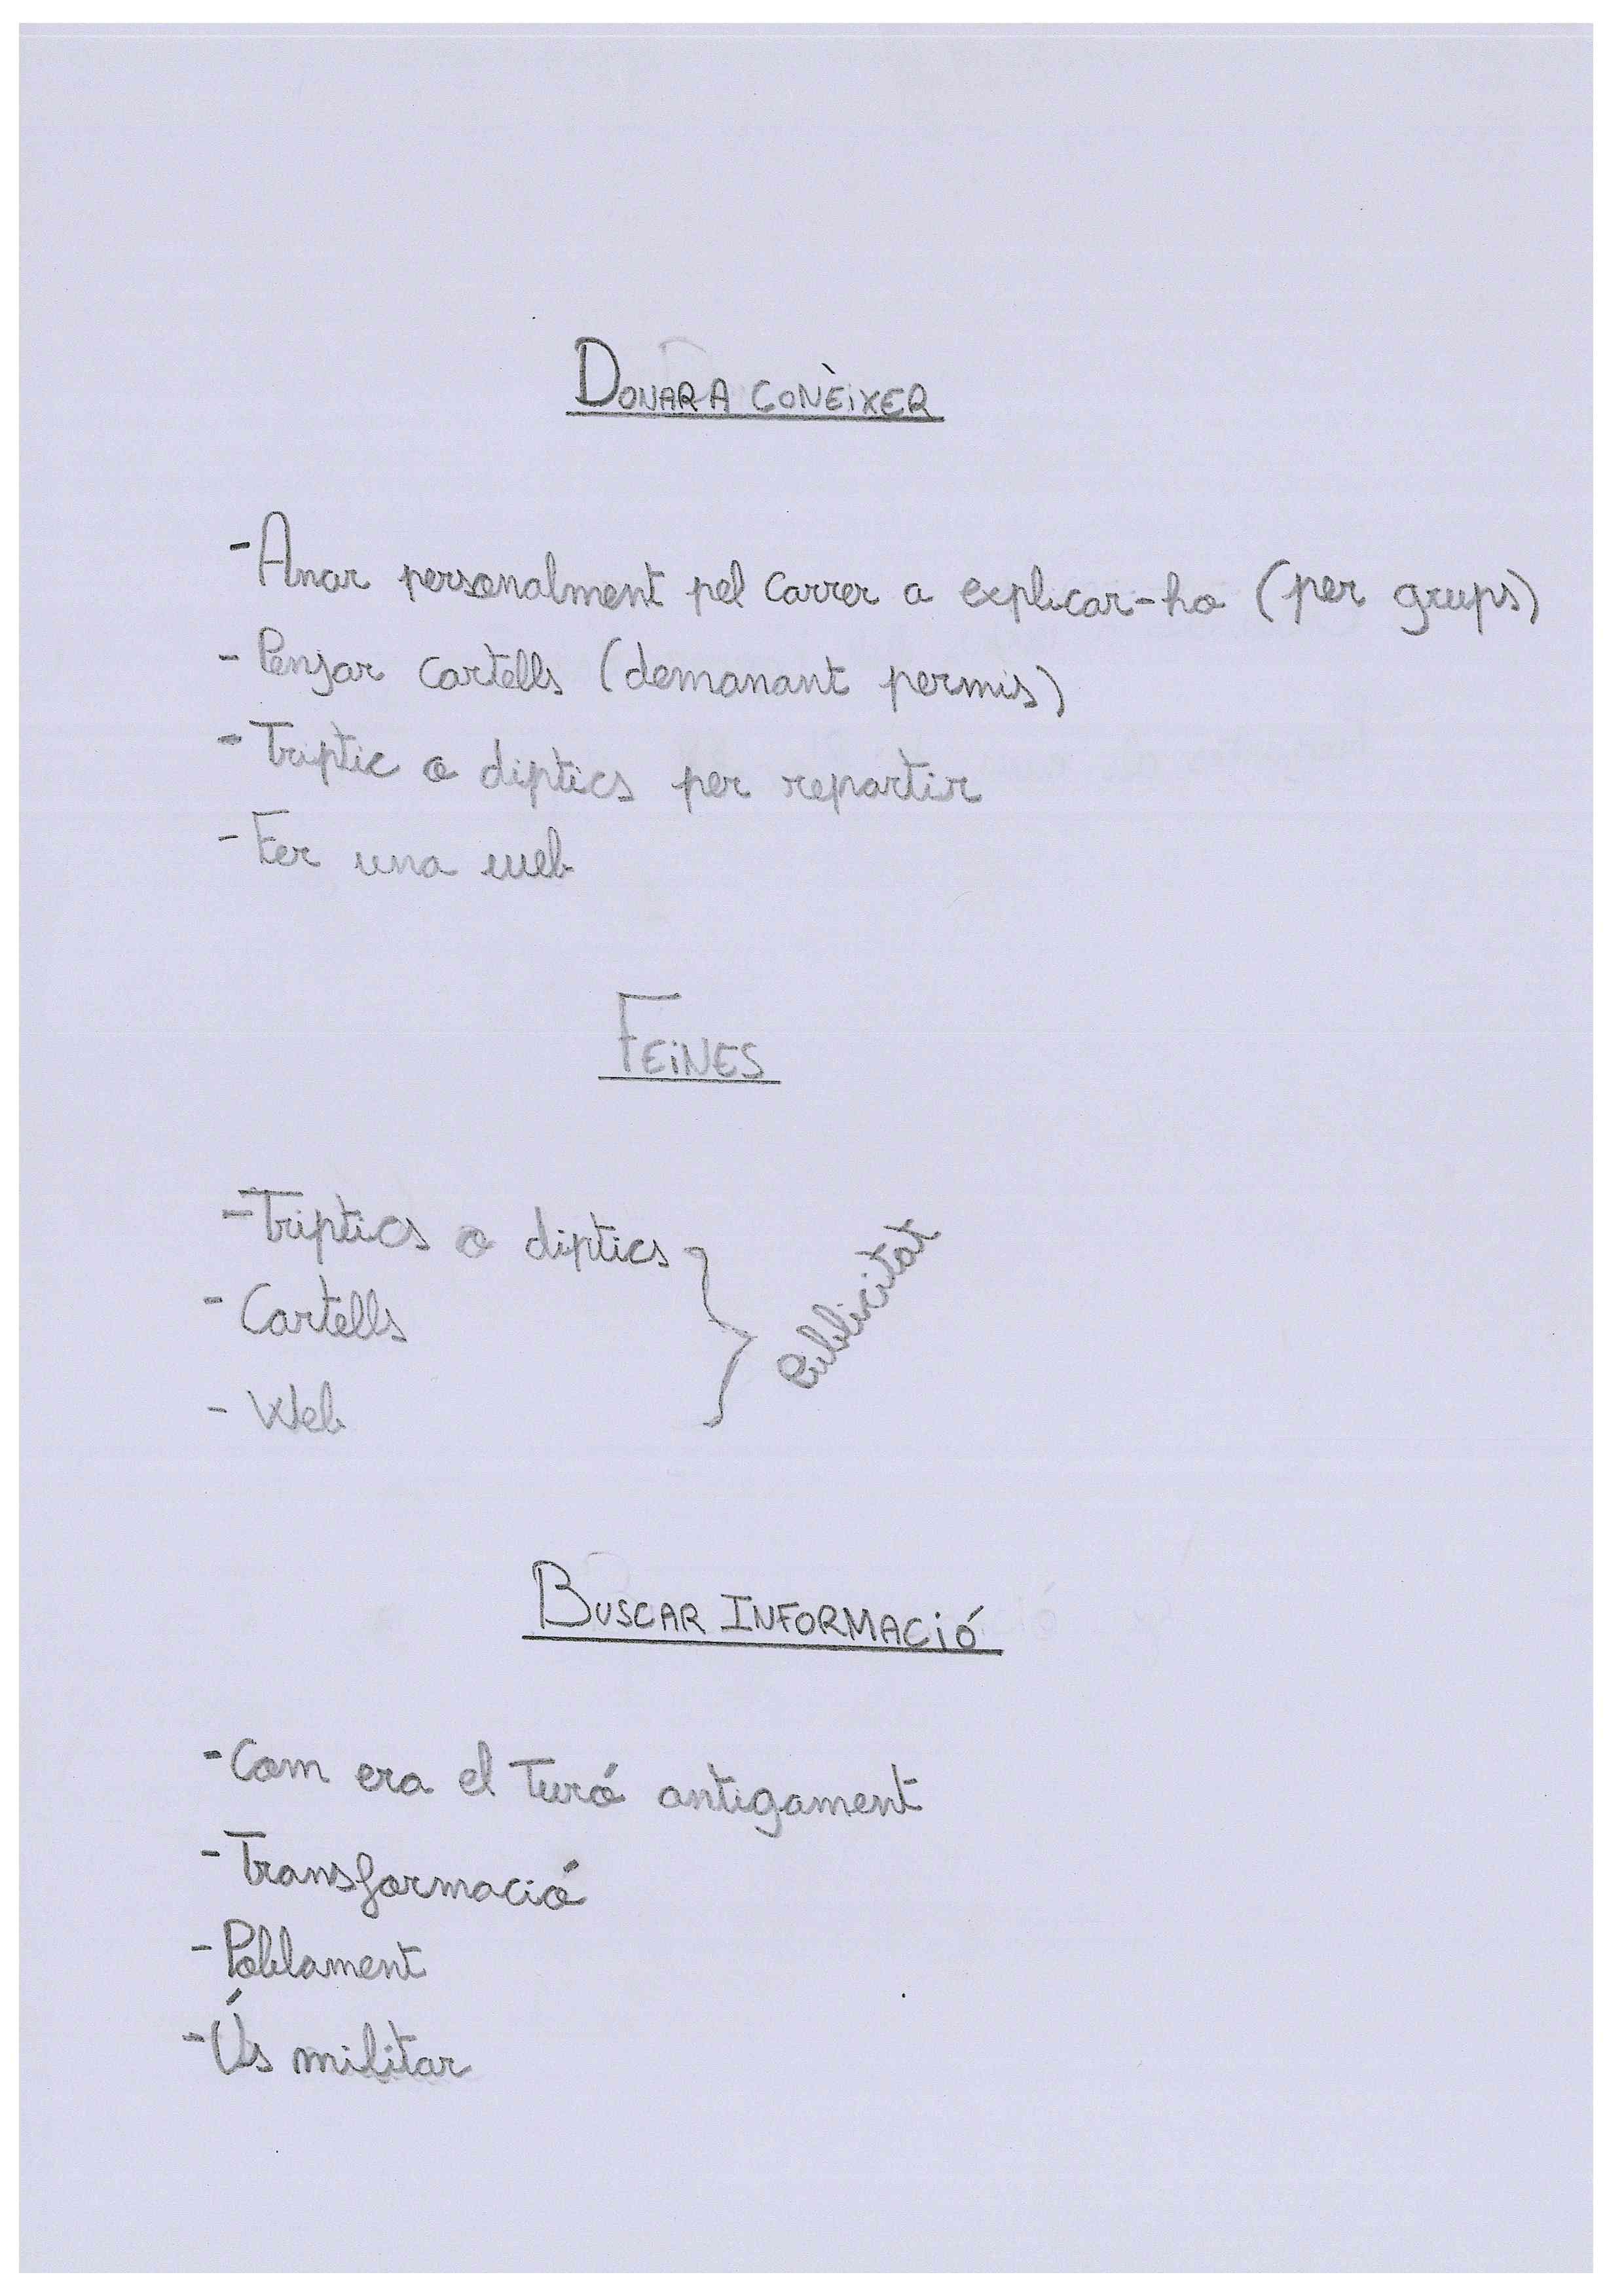 DONAR A CONÈIXER
- Anar personalment pel carrer a explicar-ho (per grups)
- Penjar cartells (demanant permis)
- Triptic o diptics per repartir
- Fer una web
FEINES
- Triptics o diptics
- Cartells
- Web
Publicitat
BUSCAR INFORMACIÓ
- Com era el Turó antigament
- Transformació
- Poblament
- Ús militar